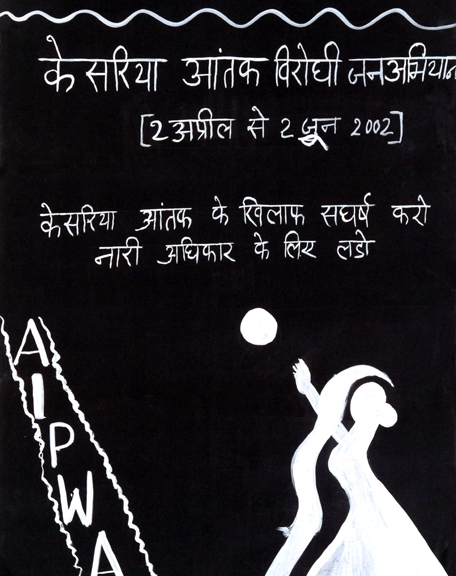 केसरिया आंतक विरोधी जनअभियान
[2 अप्रील से 2 जून 2002]
केसरिया आंतक के खिलाफ सघर्ष करो
नारी अधिकार के लिए लडो
AIPWA